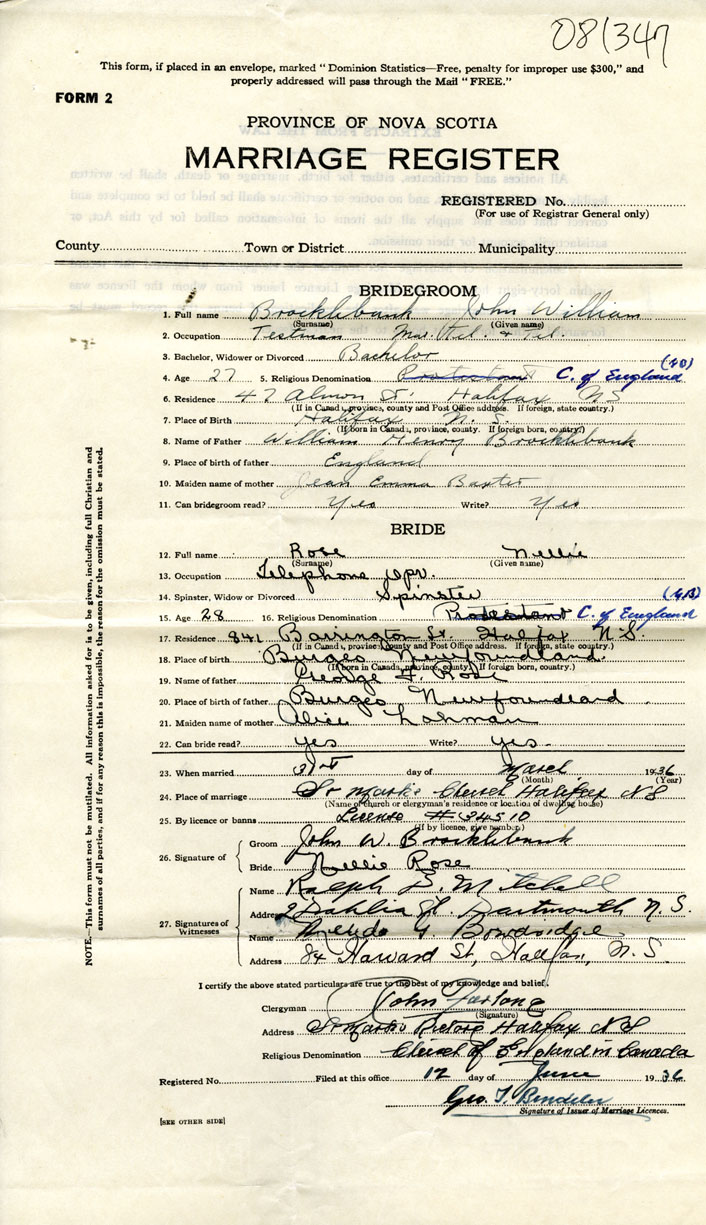 081347
This form, if placed in an envelope, marked "Dominion Statistics—Free, penalty for improper use $300," and
properly addressed will pass through the Mail "FREE."
FORM 2
PROVINCE OF NOVA SCOTIA
MARRIAGE REGISTER
REGISTERED No.
(For use of Registrar General only)
County Town or District Municipality
BRIDEGROOM
1. Full name Brocklebank John William
(Surname) (Given name)
2. Occupation Testman Mar. Tel. & Tel.
3. Bachelor, Widower or Divorced Bachelor
(40)
4. Age 27 5. Religious Denomination Protestant C. of England
6. Residence 47 Almon St. Halifax N S
(If in Canada, province, county and Post Office address. If foreign, state country.)
7. Place of Birth Halifax N. S.
(If born in Canada, province, county. If foreign born, country.)
8. Name of Father William Henry Brocklebank
9. Place of birth of father England
10. Maiden name of mother Jean Emma Baxter
11. Can bridegroom read? Yes Write? Yes
BRIDE
12. Full name Rose Nellie
(Surname) (Given name)
13. Occupation Telephone Opr.
14. Spinster, Widow or Divorced Spinster
15. Age 28 16. Religious Denomination Protestant C. of England
17. Residence 841 Barrington St. Halifax N.S.
(If in Canada, province, county and Post Office address. If foreign, state country.)
18. Place of Birth Burgeo Newfoundland.
(If born in Canada, province, county. If foreign born, country.)
19. Name of father George F. Rose
20. Place of birth of father Burgeo Newfoundland
21. Maiden name of mother Alice
22. Can bride read? yes Write? yes.
23. When married 31st day of March 1936
(Month) (Year)
24. Place of marriage St Mark's Church Halifax N S
(Name of church or clergyman's residence or location of dwelling house)
25. By licence or banns License # 34510
(If by licence, give number)
26. Signature of
Groom John W. Brocklebank
Bride Nellie Rose
27. Signatures of Witnesses
Name Ralph Mitchell
Address 2 Dahlia St. Dartmouth N.S.
Name
Address 84 Harvard St, Halifax, N. S.
I certify the above stated particulars are true to the best of my knowledge and belief.
Clergyman John Furlong
(Signature)
Address St Mark's Rectory Halifax N S
Religious Denomination Church of England in Canada
Registered No. Filed at this office 12 day of June 1936
Geo. T.
Signature of Issuer of Marriage Licences.
[SEE OTHER SIDE]
NOTE.—This form must not be mutilated. All information asked for is to be given, including full Christian and
surnames of all parties, and if for any reason this is impossible, the reason for the omission must be stated.